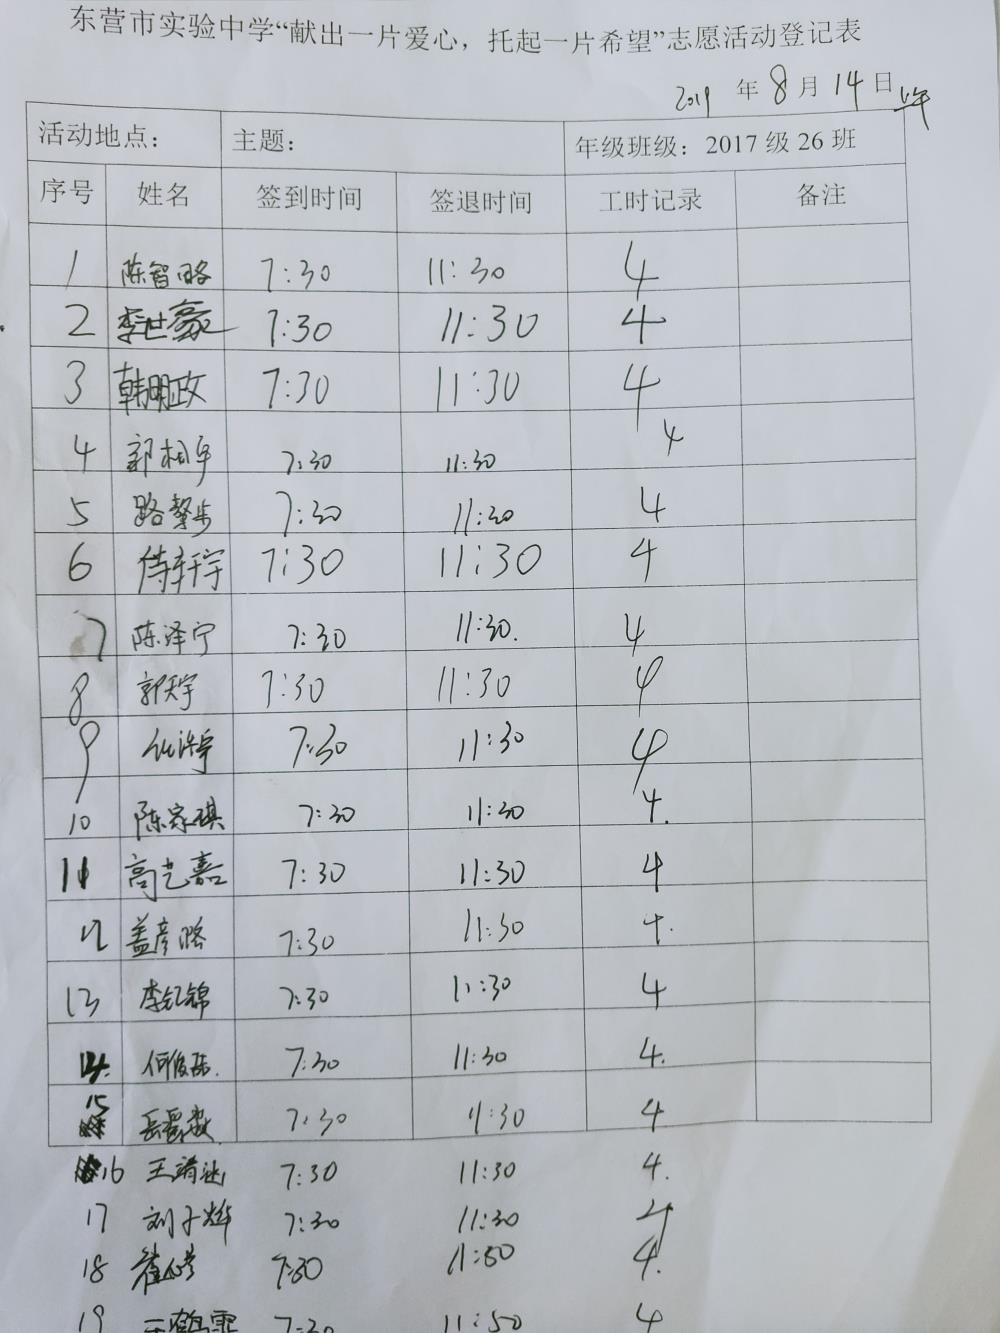 东营市实验中学“献出一片爱心，托起一片希望”志愿活动登记表
2019 年 8 月 14 日
活动地点： 主题： 年级班级：2017 级 26 班
序号 姓名 签到时间 签退时间 工时记录 备注
1 陈智略 7:30 11:30 4
2 李世豪 7:30 11:30 4
3 韩明政 7:30 11:30 4
4 郭相 7:30 11:30 4
5 路 7:30 11:30 4
6 轩宇 7:30 11:30 4
7 陈泽宁 7:30 11:30. 4
8 郭天宇 7:30 11:30 4
9 7:30 11:30 4
10 陈家琪 7:30 11:30 4.
11 高艺嘉 7:30 11:30 4
12 盖彦 7:30 11:30 4.
13 李 锦 7:30 11:30 4
14. 何俊 7:30 11:30 4.
15 岳 7:30 11:30 4
16 王 7:30 11:30 4.
17 刘子烨 7:30 11:30 4
18 崔 7:30 11:50 4.
19 王鹤霏 7:30 11:50 4